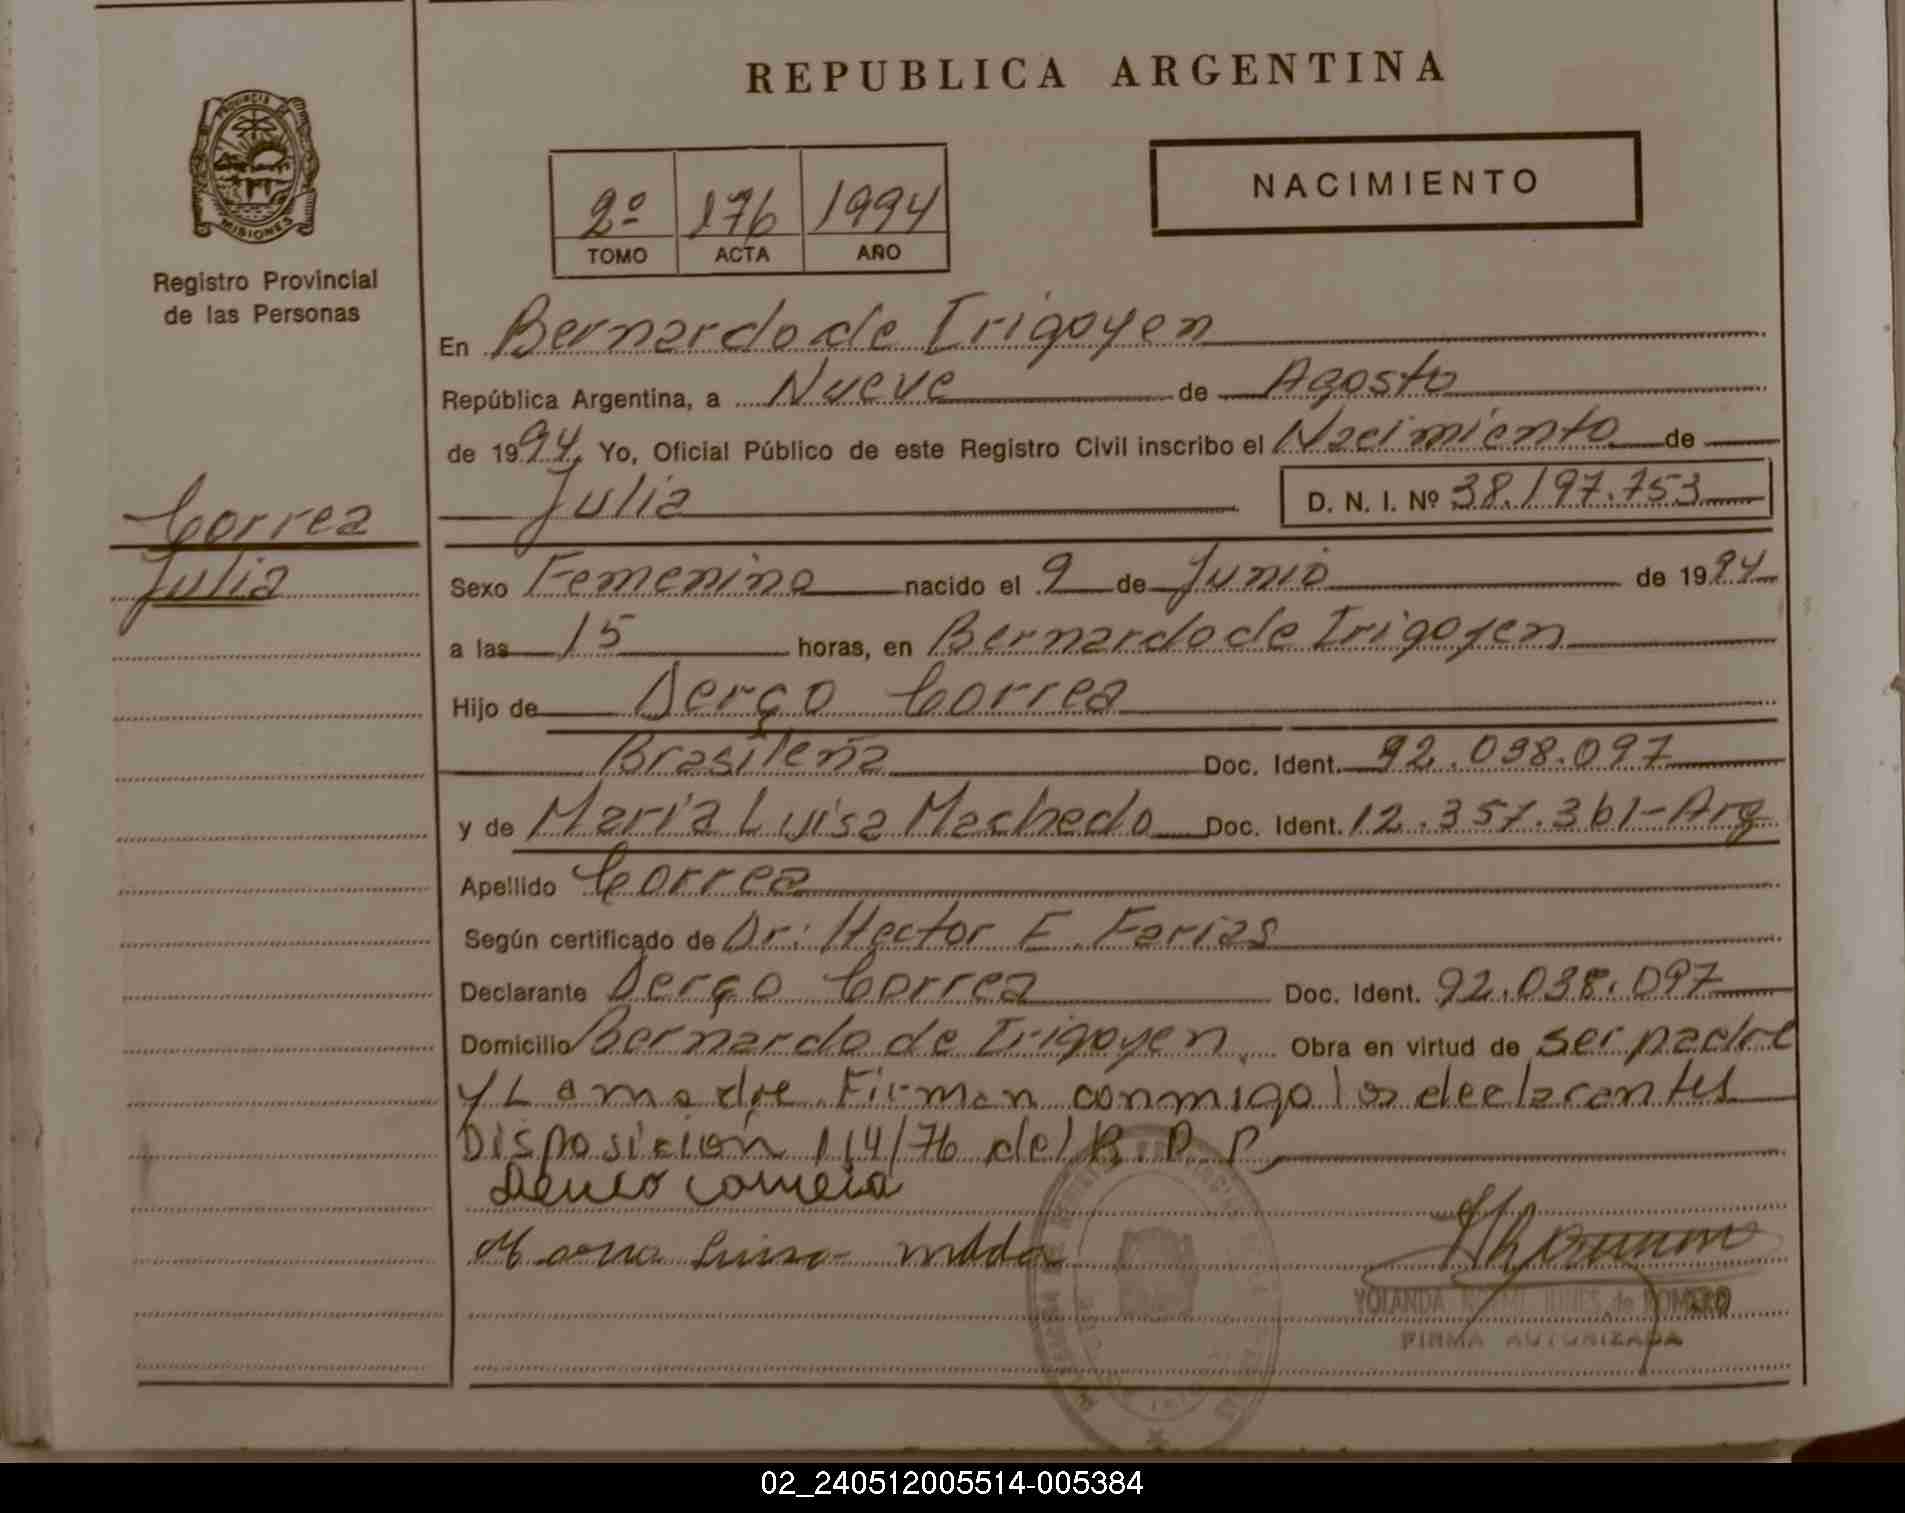 REPUBLICA ARGENTINA
PROVINCIA DE
MISIONES
Registro Provincial
de las Personas
2º 176 1994
TOMO ACTA AÑO
NACIMIENTO
En Bernardo de Irigoyen
República Argentina, a Nueve de Agosto
de 1994. Yo, Oficial Público de este Registro Civil inscribo el Nacimiento de
Julia D. N. I. Nº 38.197.753
Correa
Julia
Sexo Femenino nacido el 9 de Junio de 1994
a las 15 horas, en Bernardo de Irigoyen
Hijo de Derço Correa
Brasileña Doc. Ident. 92.038.097
y de Maria Luisa Machado Doc. Ident. 12.357.361-Arg
Apellido Correa
Según certificado de Dr. Hector E. Farias
Declarante Derço Correa Doc. Ident. 92.038.097
Domicilio Bernardo de Irigoyen. Obra en virtud de ser padre
y La madre Firman conmigo los declarantes
Disposición 114/76 del R. P. P.
Correia
Maria Luisa
YOLANDA NOEMI de ROMERO
FIRMA AUTORIZADA
02_240512005514-005384